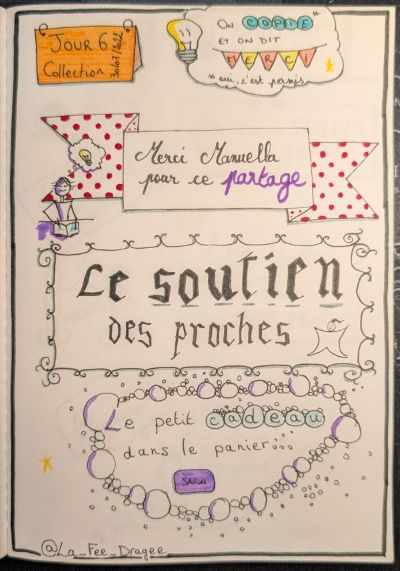 JOUR 6
Collection
30/07/2022
ON COPIE
ET ON DIT
MERCI
*oui, c'est permis*
Merci Manuella
pour ce partage
Le soutien
des proches
Le petit cadeau
dans le panier...
SAVON
@La_Fee_Dragee